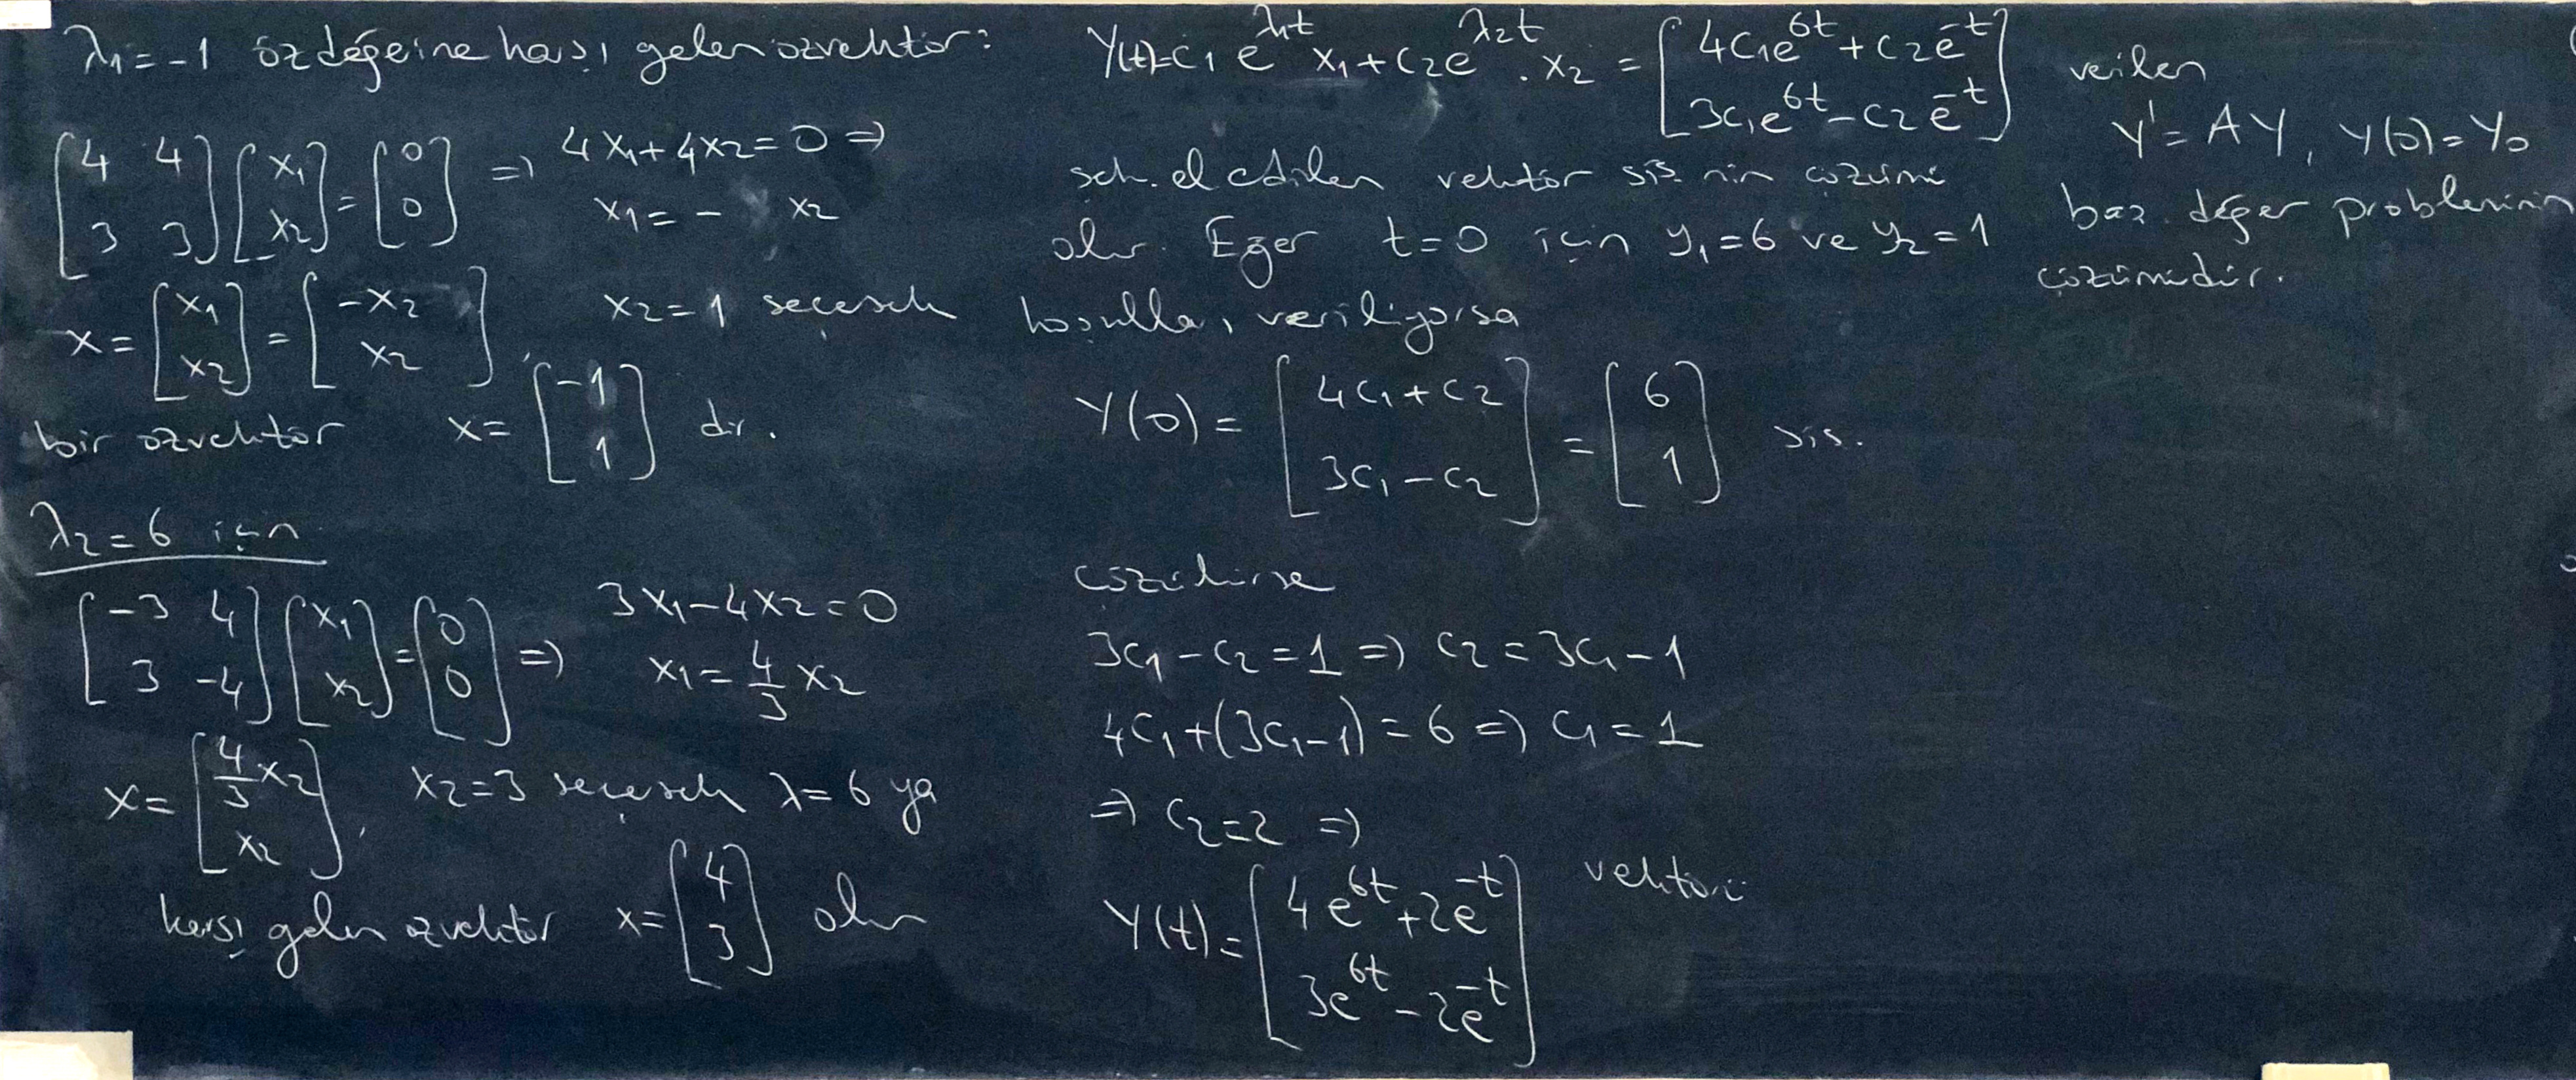 λ1 = -1 özdeğerine karşı gelen özvektör:
[4 4; 3 3] [x1; x2] = [0; 0] => 4x1 + 4x2 = 0 =>
x1 = - x2
x = [x1; x2] = [-x2; x2], x2 = 1 seçersek
bir özvektör x = [-1; 1] dir.
λ2 = 6 için
[-3 4; 3 -4] [x1; x2] = [0; 0] => 3x1 - 4x2 = 0
x1 = 4/3 x2
x = [4/3 x2; x2], x2 = 3 seçersek λ = 6 ya
karşı gelen özvektör x = [4; 3] olur
Y(t) = c1 e^{λ1t} x1 + c2 e^{λ2t} . x2 = [4c1e^{6t} + c2e^{-t}; 3c1e^{6t} - c2e^{-t}]
şek. el edilen vektör sis. nin çözümü
olur. Eğer t = 0 için y1 = 6 ve y2 = 1
koşulları veriliyorsa
Y(0) = [4c1 + c2; 3c1 - c2] = [6; 1] sis.
çözülürse
3c1 - c2 = 1 => c2 = 3c1 - 1
4c1 + (3c1 - 1) = 6 => c1 = 1
=> c2 = 2 =>
Y(t) = [4e^{6t} + 2e^{-t}; 3e^{6t} - 2e^{-t}] vektörü
verilen
Y' = AY, Y(0) = Y0
baş. değer probleminin
çözümüdür.